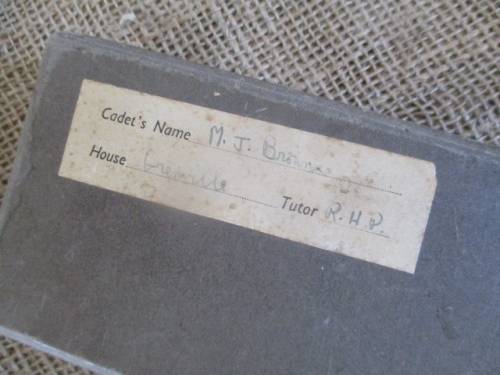 Cadet's Name M. J. Browne
House Grenville
Tutor R. H. P.